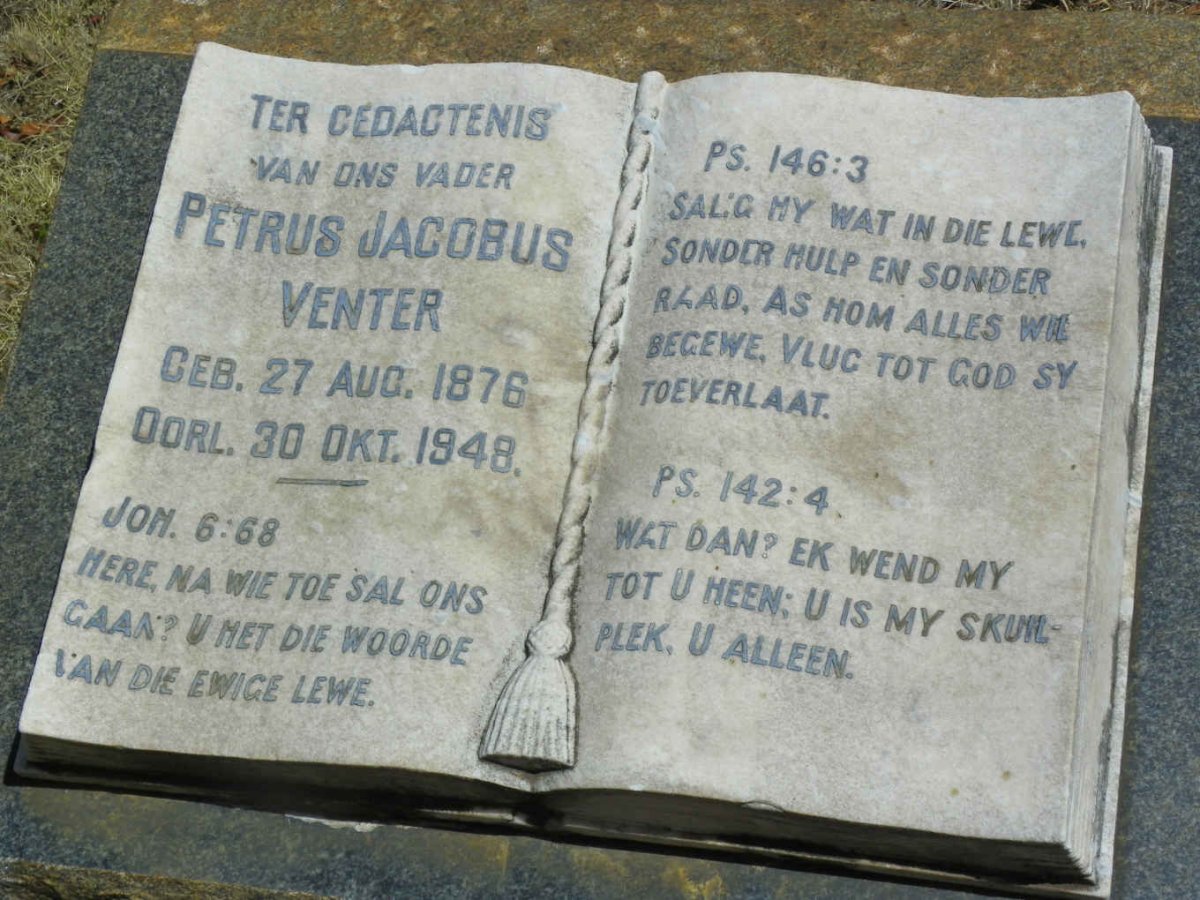 TER GEDAGTENIS
VAN ONS VADER
PETRUS JACOBUS
VENTER
GEB. 27 AUG. 1876
OORL. 30 OKT. 1948.
JOH. 6:68
HERE, NA WIE TOE SAL ONS
GAAN? U HET DIE WOORDE
VAN DIE EWIGE LEWE.
PS. 146:3
SALIG HY WAT IN DIE LEWE,
SONDER HULP EN SONDER
RAAD, AS HOM ALLES WIL
BEGEWE, VLUG TOT GOD SY
TOEVERLAAT.
PS. 142:4
WAT DAN? EK WEND MY
TOT U HEEN; U IS MY SKUIL-
PLEK, U ALLEEN.